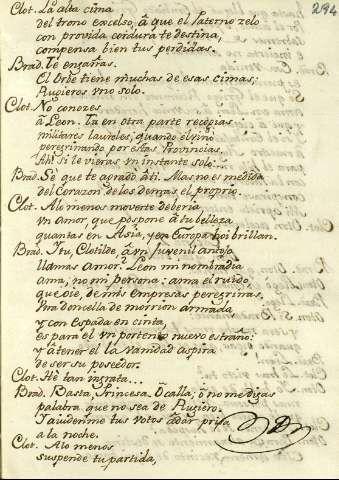 294
Clot. La alta cima
del trono excelso, â que el Paterno zelo
con provida cordura te destina,
compensa bien tus perdidas.
Brad. Te engañas.
El Orbe tiene muchas de esas cimas;
Rugieros vno solo.
Clot. No conozes
â Leon. Tu en otra parte recogias
militares laureles, quando el vino
peregrinando por estas Provincias.
Ah! si le vieras vn instante solo...
Brad. Sè que te agradò â ti. Mas no es medida
del Corazon de los demas el proprio.
Clot. Alo menos moverte deberia
vn amor, que pospone â tu belleza
quantas en Asia, y en Europa hoi brillan.
Brad. I tu, Clotilde, â vn juvenil antojo
llamas amor? Leon mi nombradia
ama, no mi persona: ama el ruido,
que oie, de mis empresas peregrinas.
Vna doncella de morrion armada
y con espada en cinta,
es para el vn portento nuevo estraño:
y â tener el la vanidad aspira
de ser su poseedor.
Clot. Hè tan ingrata...
Brad. Basta, Princesa. Ô calla; ô no me digas
palabra que no sea de Rugiero.
I aiudenme tus votos â dar prisa
a la noche.
Clot. Alo menos
suspende tu partida,